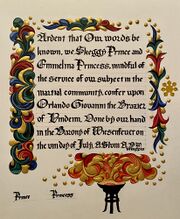 Ardent that Our words be
known, we Skeggi Prince and
Emmelina Princess, mindful
of the service of our subject in the
martial community, confer upon
Orlando Giovanni the Brazier
of Done by our hand
in the Barony of Wiesenfeuer on
the day of July, A.S.
Prince Princess